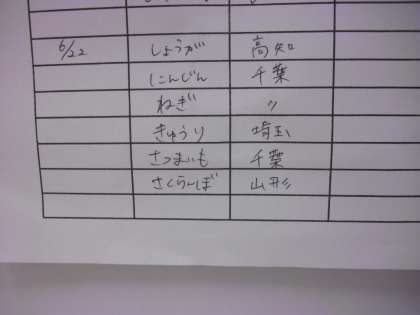 6/22 しょうが 高知
にんじん 千葉
ねぎ 〃
きゅうり 埼玉
さつまいも 千葉
さくらんぼ 山形